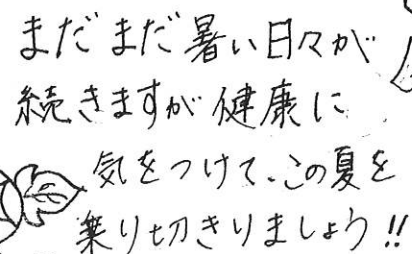 まだまだ暑い日々が
続きますが健康に
気をつけて、この夏を
乗り切りましょう!!